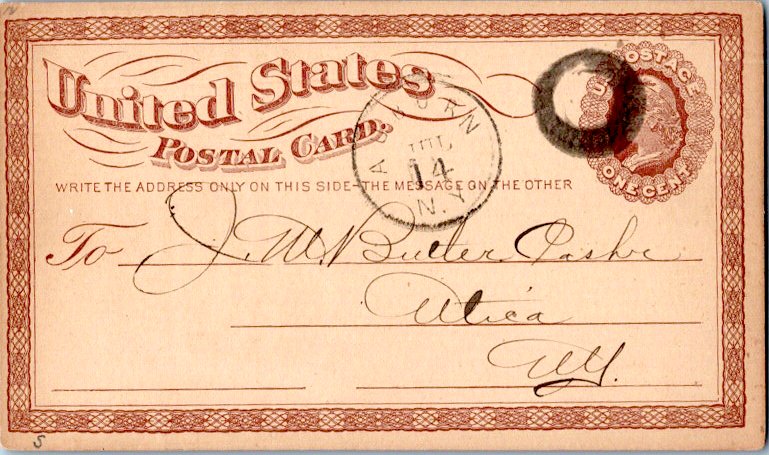 United States
POSTAL CARD.
U.S. POSTAGE
ONE CENT
AUBURN
JUL
14
N.Y.
WRITE THE ADDRESS ONLY ON THIS SIDE-THE MESSAGE ON THE OTHER
To J. W. Butler Cashr
Utica
NY.
S